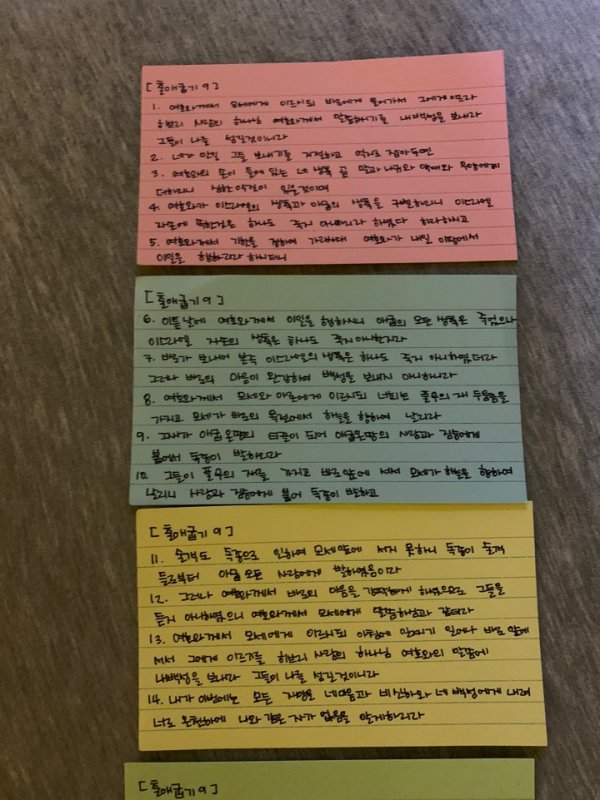 [출애굽기 9]
1. 여호와께서 모세에게 이르시되 바로에게 들어가서 그에게 이르라
히브리 사람의 하나님 여호와께서 말씀하시기를 내 백성을 보내라
그들이 나를 섬길것이니라
2. 네가 만일 그들 보내기를 거절하고 억지로 잡아두면
3. 여호와의 손이 들에 있는 네 생축 곧 말과 나귀와 약대와 우양에게
더하리니 심한 악질이 있을것이며
4. 여호와가 이스라엘의 생축과 애굽의 생축을 구별하리니 이스라엘
자손에 속한것은 하나도 죽지 아니하리라 하셨다 하라하시고
5. 여호와께서 기한을 정하여 가라사대 여호와가 내일 이땅에서
이일을 행하리라 하시더니
[출애굽기 9]
6. 이튿날에 여호와께서 이일을 행하시니 애굽의 모든 생축은 죽었으나
이스라엘 자손의 생축은 하나도 죽지 아니한지라
7. 바로가 보내어 본즉 이스라엘의 생축은 하나도 죽지 아니하였더라
그러나 바로의 마음이 완강하여 백성을 보내지 아니하니라
8. 여호와께서 모세와 아론에게 이르시되 너희는 풀무의 재 두움큼을
가지고 모세가 바로의 목전에서 하늘을 향하여 날리라
9. 그재가 애굽온땅의 티끌이 되어 애굽온땅의 사람과 짐승에게
붙어서 독종이 발하리라
10. 그들이 풀무의 재를 가지고 바로앞에 서서 모세가 하늘을 향하여
날리니 사람과 짐승에게 붙어 독종이 발하고
[출애굽기 9]
11. 술객도 독종으로 인하여 모세앞에 서지 못하니 독종이 술객
들로부터 애굽 모든 사람에게 발하였음이라
12. 그러나 여호와께서 바로의 마음을 강퍅하게 하셨으므로 그들을
듣지 아니하였으니 여호와께서 모세에게 말씀하심과 같더라
13. 여호와께서 모세에게 이르시되 아침에 일찍이 일어나 바로 앞에
서서 그에게 이르기를 히브리 사람의 하나님 여호와의 말씀에
내백성을 보내라 그들이 나를 섬길것이니라
14. 내가 이번에는 모든 재앙을 네마음과 네 신하와 네 백성에게 내려
너로 온천하에 나와 같은 자가 없음을 알게하리라
[출애굽기 9]